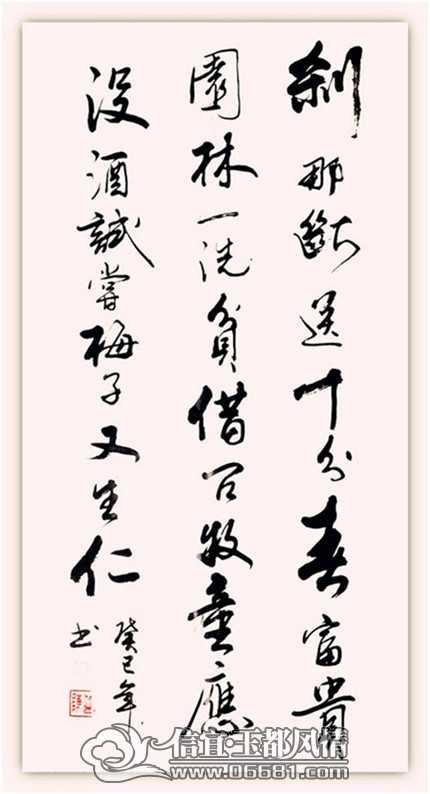 刹那斷送十分春富貴
園林一洗貧借问牧童應
没酒試嘗梅子又生仁
癸巳年
书
信宜·玉都风情
www.06681.com